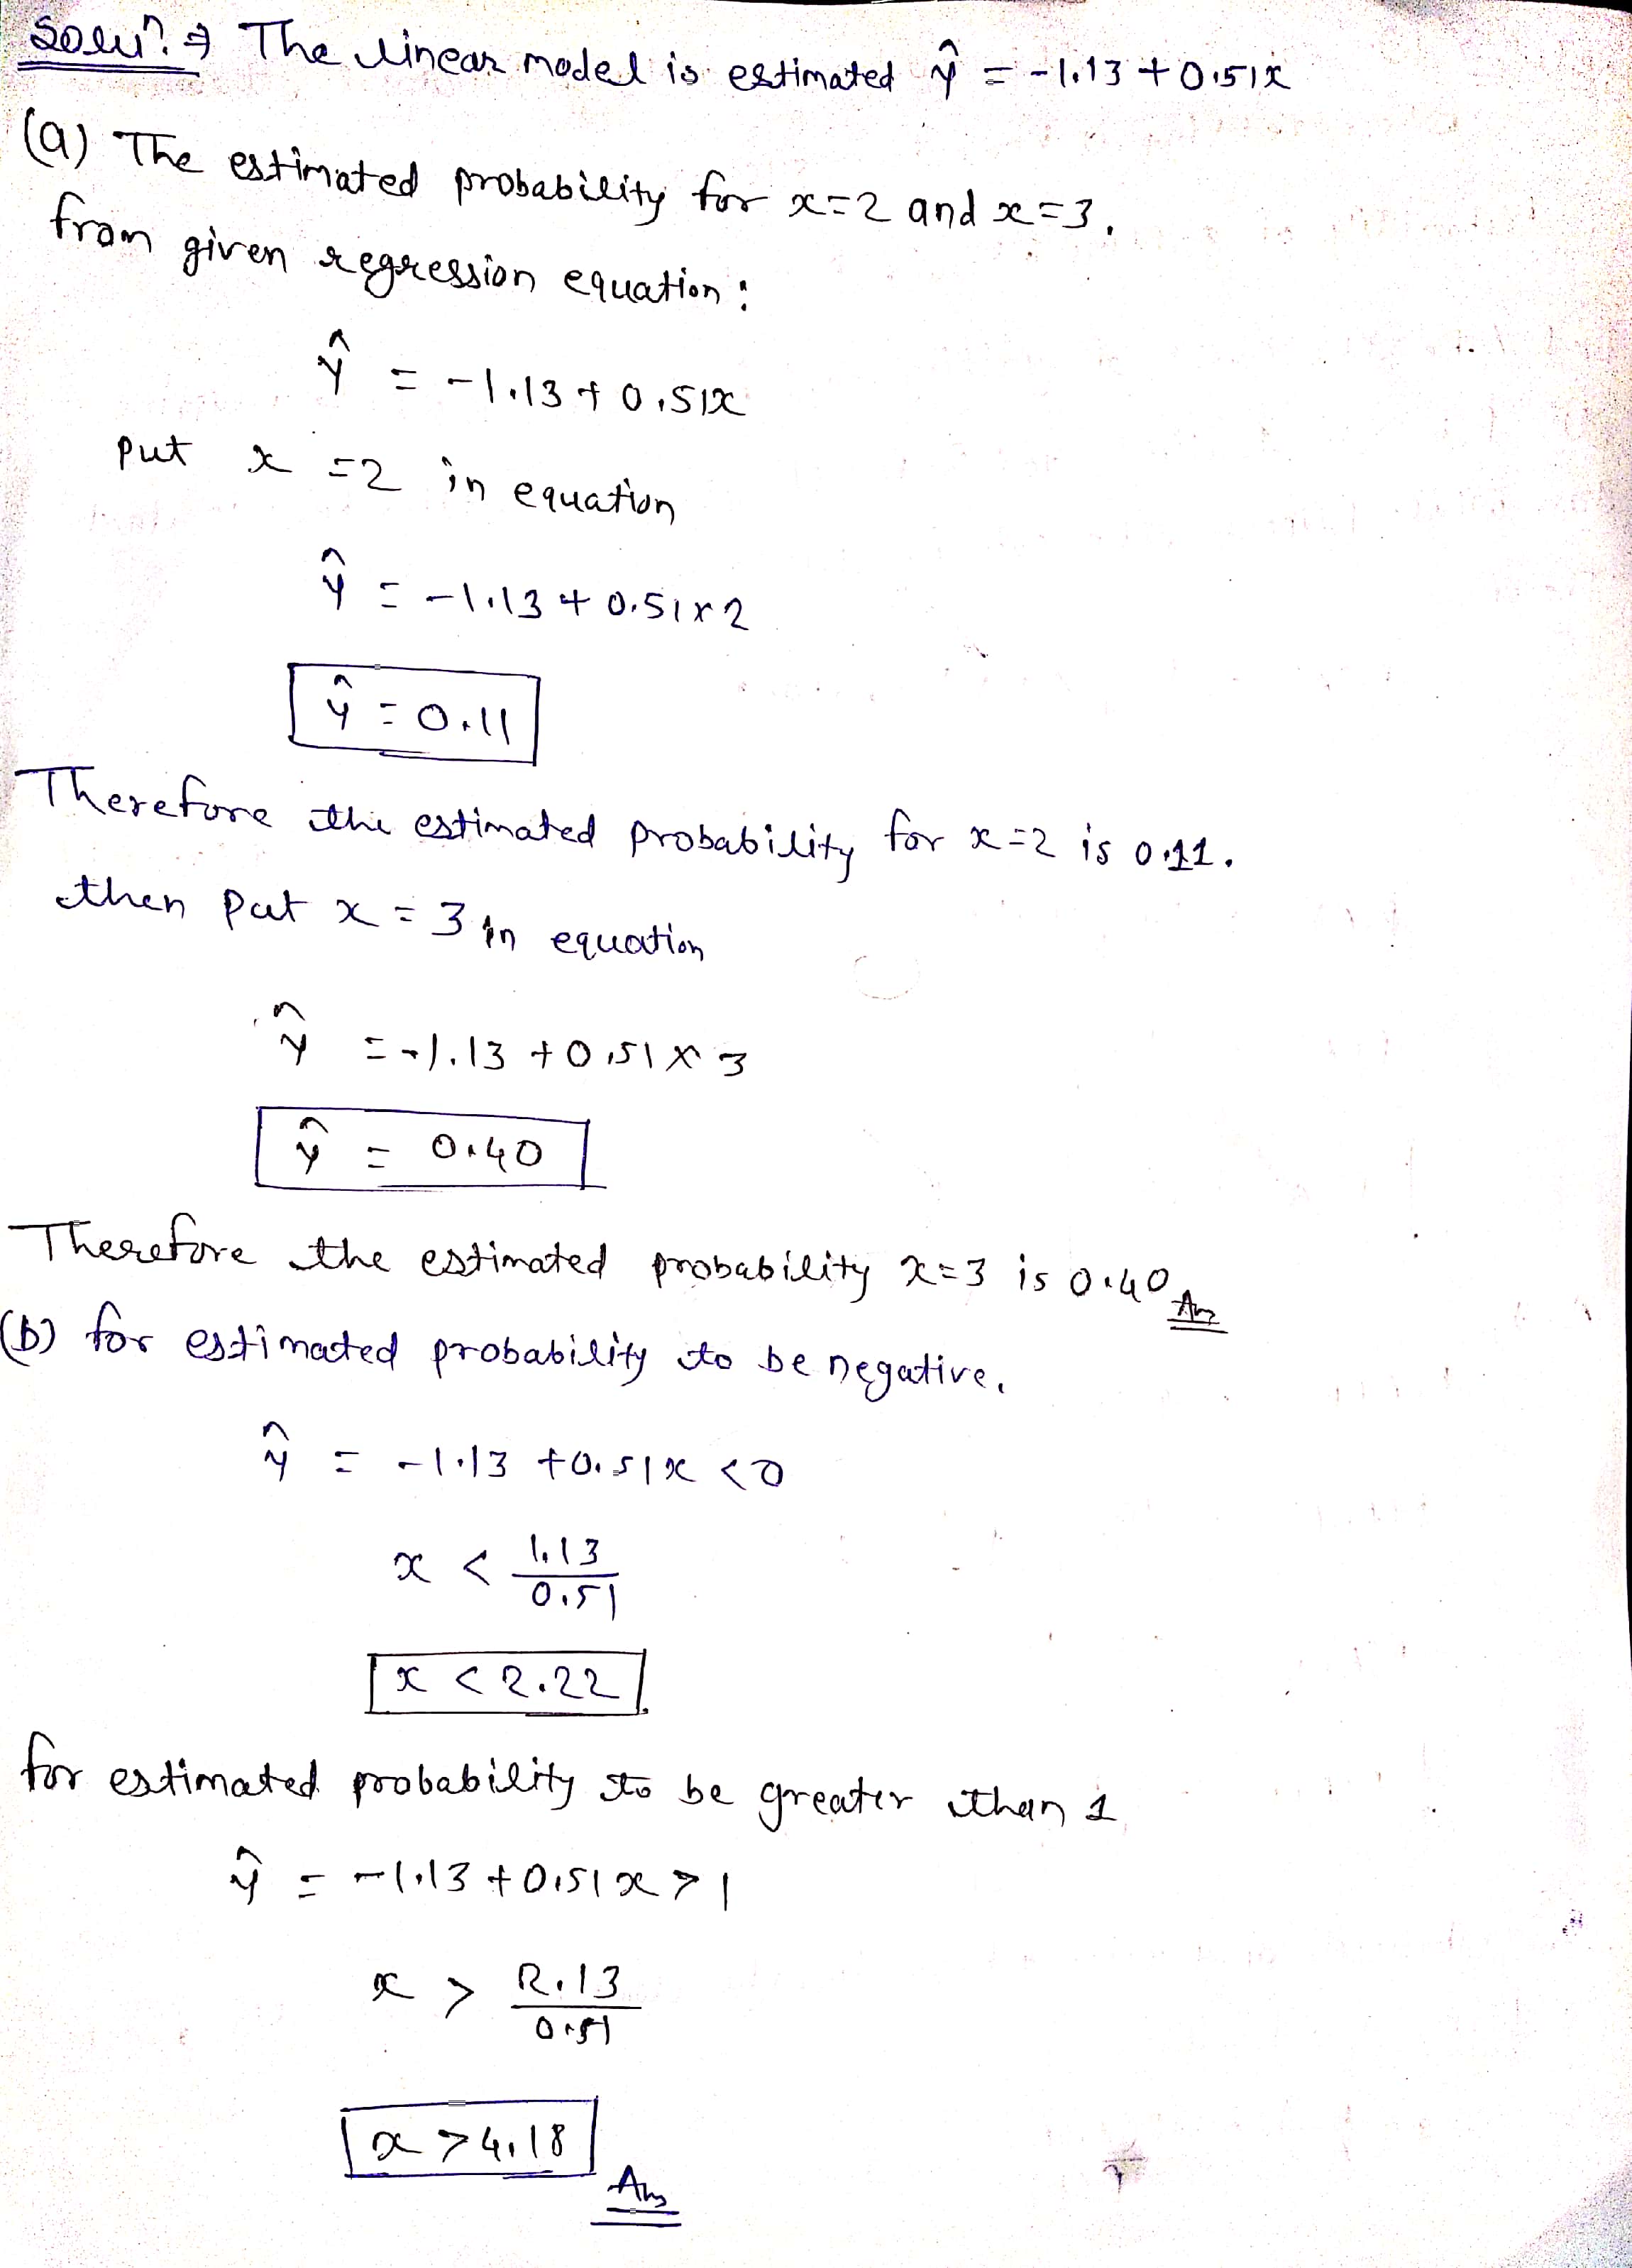 Solun. ⇒ The linear model is estimated ŷ = -1.13 + 0.51x
(a) The estimated probability for x=2 and x=3.
from given regression equation:
ŷ = -1.13 + 0.51x
put x = 2 in equation
ŷ = -1.13 + 0.51×2
ŷ = 0.11
Therefore the estimated probability for x=2 is 0.11.
then put x = 3 in equation
ŷ = -1.13 + 0.51×3
ŷ = 0.40
Therefore the estimated probability x=3 is 0.40 Ans
(b) for estimated probability to be negative.
ŷ = -1.13 + 0.51x < 0
x < 1.13
0.51
x < 2.22
for estimated probability to be greater than 1
ŷ = -1.13 + 0.51x > 1
x > 2.13
0.51
x > 4.18
Ans